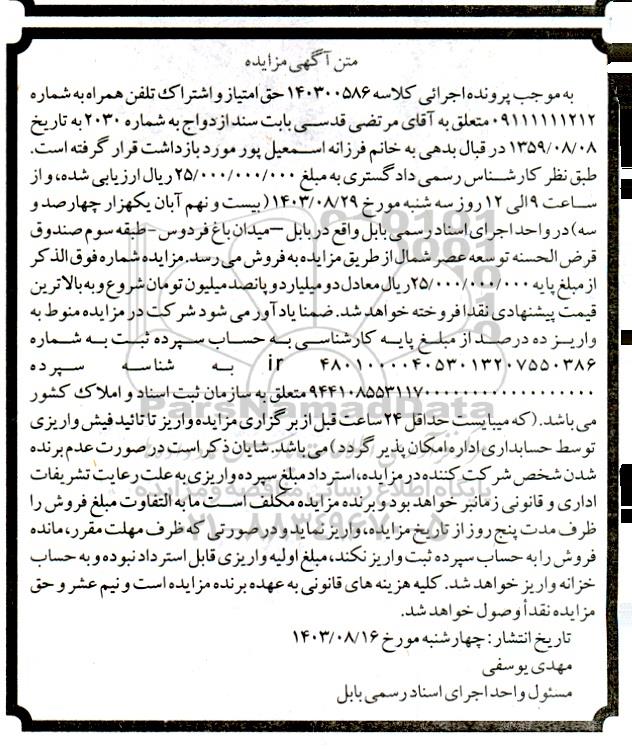 متن آگهی مزایده
به موجب پرونده اجرائی کلاسه ۱۴۰۳۰۰۵۸۶ حق امتیاز و اشتراک تلفن همراه به شماره
۰۹۱۱۱۱۱۱۲۱۲ متعلق به آقای مرتضی قدسی بابت سند ازدواج به شماره ۲۰۳۰ به تاریخ
۱۳۵۹/۰۸/۰۸ در قبال بدهی به خانم فرزانه اسمعیل پور مورد بازداشت قرار گرفته است.
طبق نظر کارشناس رسمی دادگستری به مبلغ ۲۵/۰۰۰/۰۰۰/۰۰۰ ریال ارزیابی شده، و از
ساعت ۹ الی ۱۲ روز سه شنبه مورخ ۱۴۰۳/۰۸/۲۹ (بیست و نهم آبان یکهزار چهارصد و
سه) در واحد اجرای اسناد رسمی بابل واقع در بابل – میدان باغ فردوس - طبقه سوم صندوق
قرض الحسنه توسعه عصر شمال از طریق مزایده به فروش می رسد. مزایده شماره فوق الذکر
از مبلغ پایه ۲۵/۰۰۰/۰۰۰/۰۰۰ ریال معادل دو میلیارد و پانصد میلیون تومان شروع و به بالاترین
قیمت پیشنهادی نقدا فروخته خواهد شد. ضمنا یادآور می شود شرکت در مزایده منوط به
واریز ده درصد از مبلغ پایه کارشناسی به حساب سپرده ثبت به شماره
ir ۴۸۰۱۰۰۰۰۴۰۵۳۰۱۳۲۰۷۵۵۰۳۸۶ به شناسه سپرده
متعلق به سازمان ثبت اسناد و املاک کشور
می باشد. (که میبایست حداقل ۲۴ ساعت قبل از برگزاری مزایده واریز تا تائید فیش واریزی
توسط حسابداری اداره امکان پذیر گردد) می باشد. شایان ذکر است در صورت عدم برنده
شدن شخص شرکت کننده در مزایده، استرداد مبلغ سپرده واریزی به علت رعایت تشریفات
اداری و قانونی زمانبر خواهد بود و برنده مزایده مکلف است مابه التفاوت مبلغ فروش را
ظرف مدت پنج روز از تاریخ مزایده، واریز نماید و در صورتی که ظرف مهلت مقرر، مانده
فروش را به حساب سپرده ثبت واریز نکند، مبلغ اولیه واریزی قابل استرداد نبوده و به حساب
خزانه واریز خواهد شد. کلیه هزینه های قانونی به عهده برنده مزایده است و نیم عشر و حق
مزایده نقداً وصول خواهد شد.
تاریخ انتشار: چهارشنبه مورخ ۱۴۰۳/۰۸/۱۶
مهدی یوسفی
مسئول واحد اجرای اسناد رسمی بابل
ParsNamadData
پایگاه اطلاع رسانی مناقصه و مزایده
۰۲۱-۸۸۳۴۹۶۷۰-۵